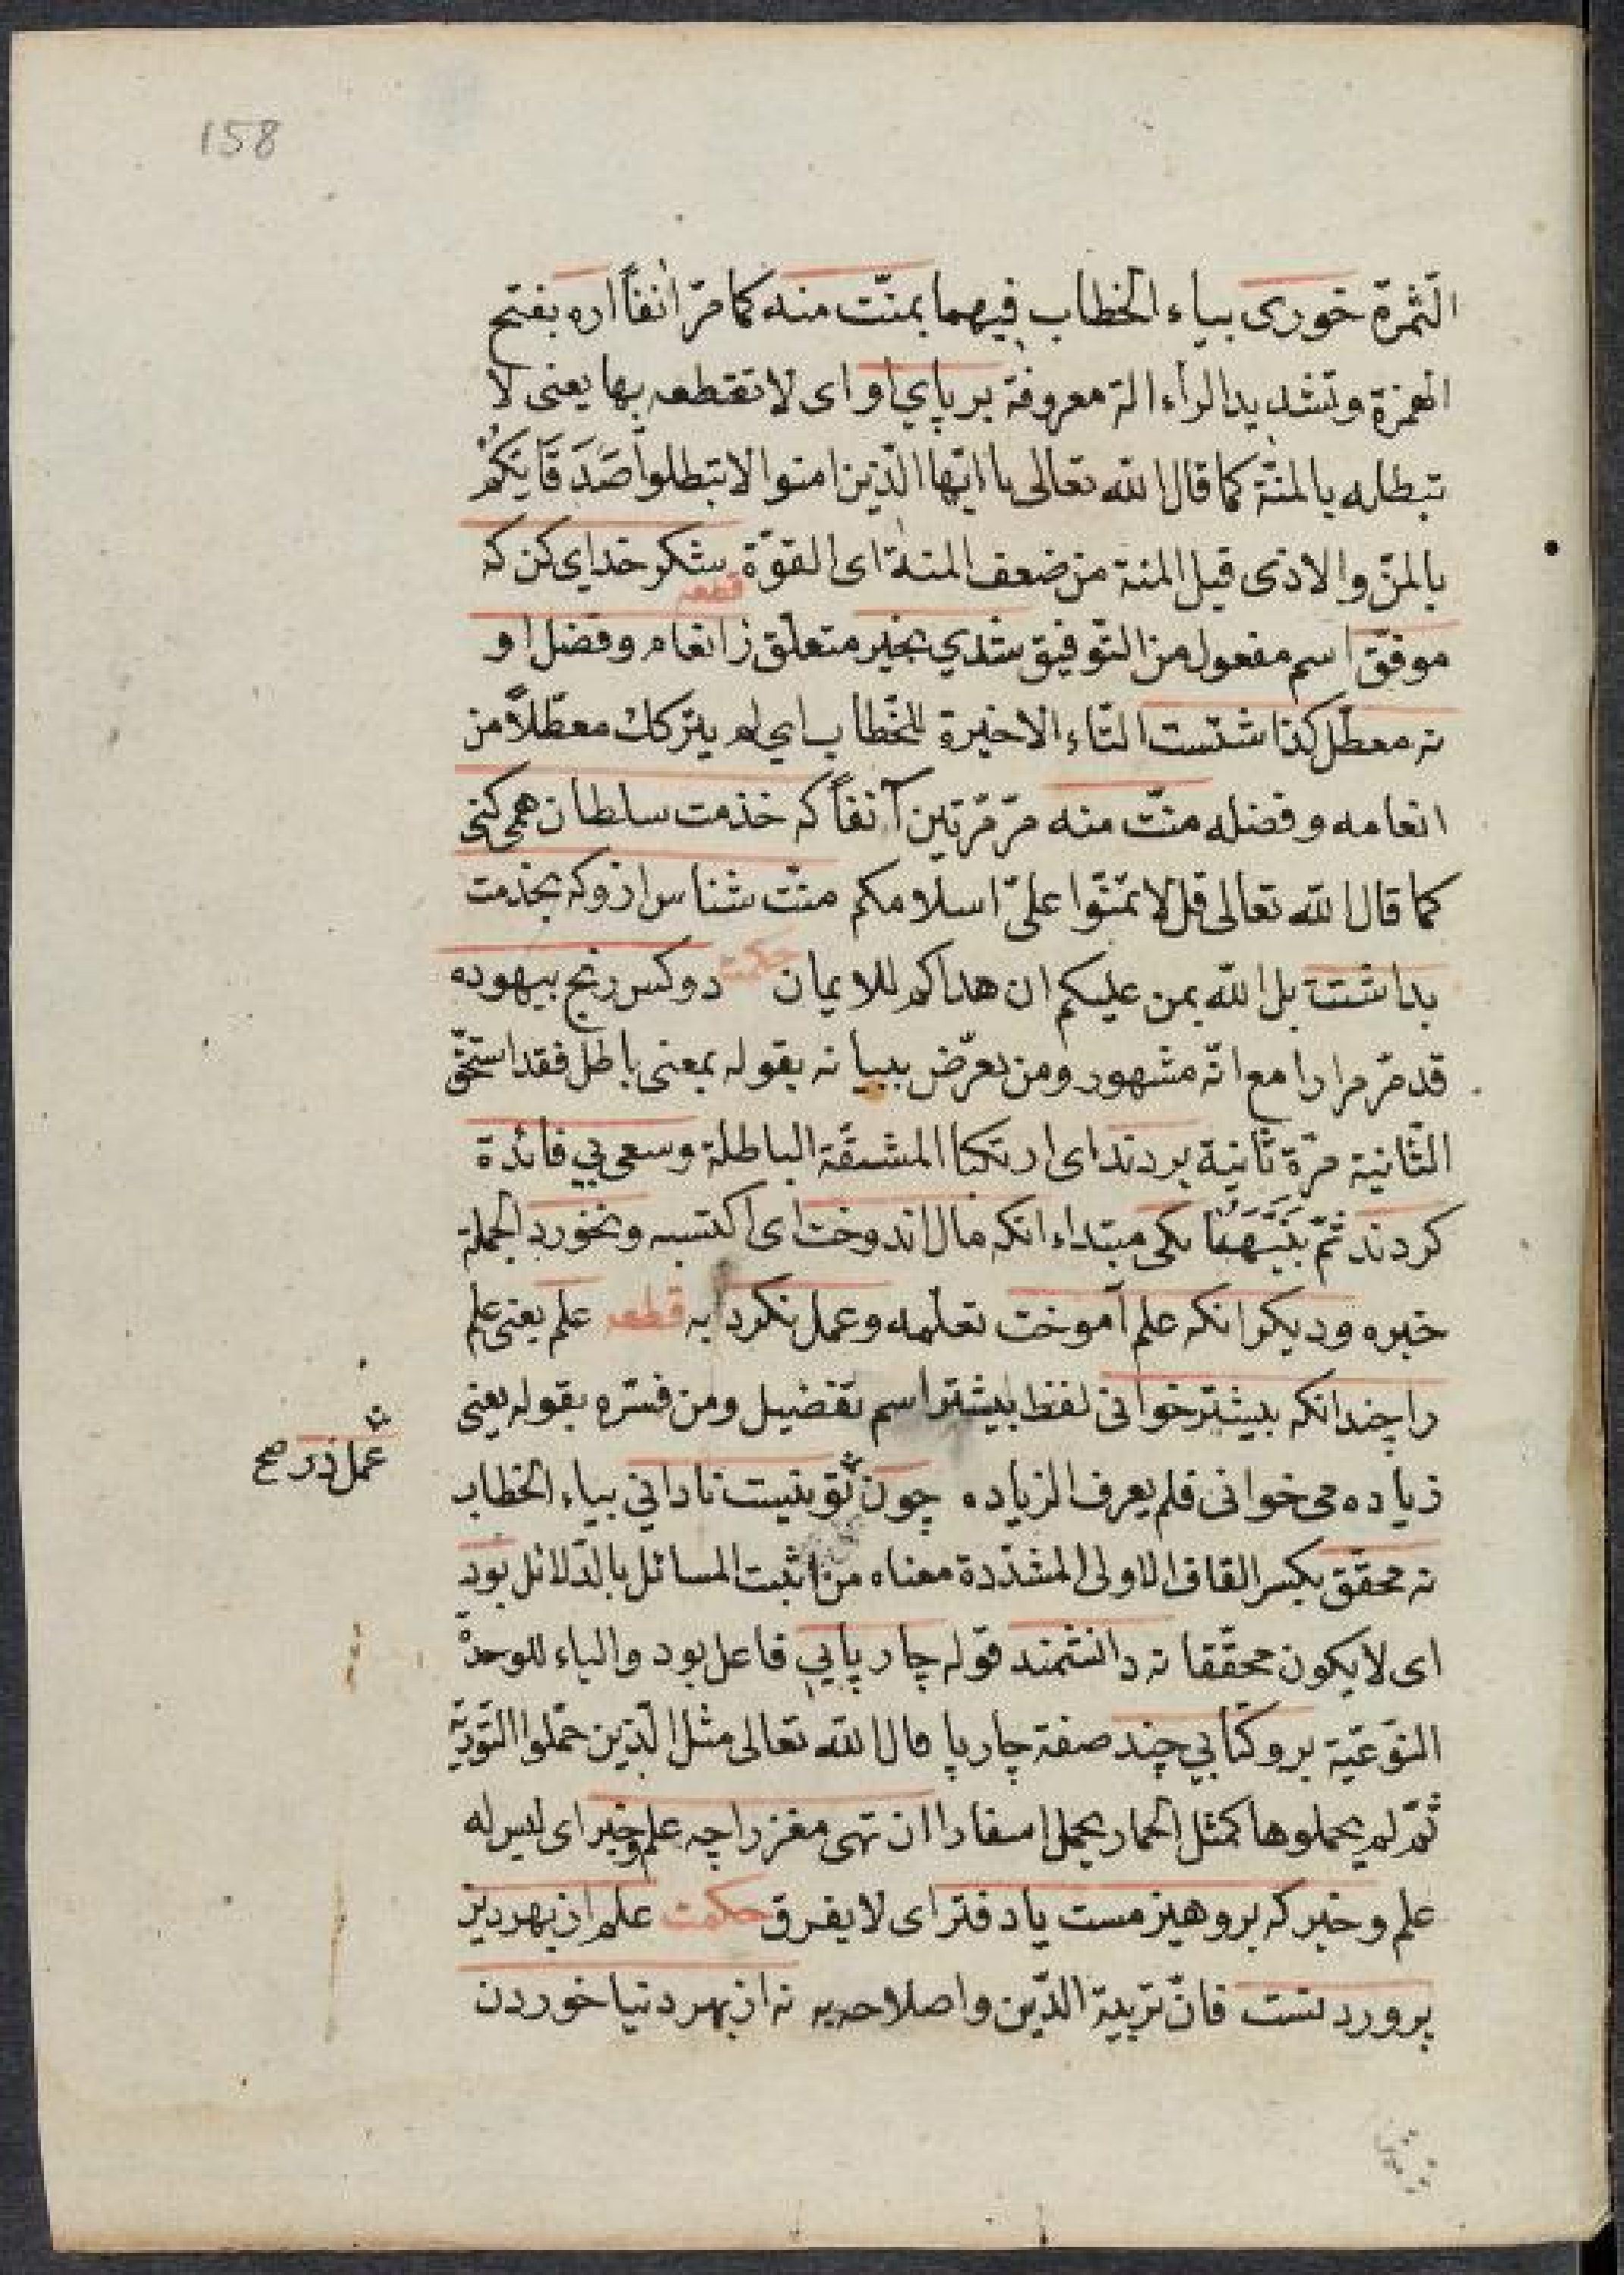 158
الثّمرة خورى بياء الخطاب فيهما بمنّت منه كما مرّ انفاً اره بفتح
الهمزة وتشديد الراء الة معروفة بر پاي او اى لا تقتطعه بها يعنى لا
تبطله بالمنّة كما قال الله تعالى يا ايّها الّذين امنوا لا تبطلوا صَدَقَاتِكُمْ
بالمنّ والاذى قيل المنة من ضعف المنة اى القوّة قطعه شكر خداي كن كه
موفّق اسم مفعول من التّوفيق شدي بخير متعلّق ز انعام وفضل او
نه معطّل كذاشتست التّاء الاخيرة للخّطاب اي لم يتركك معطّلاً من
انعامه وفضله منّت منه مرّ مرّتين آنفاً كه خذمت سلطان همى كنى
كما قال الله تعالى قل لا تمنّوا علىّ اسلامكم منّت شناس ازو كه بخذمت
بداشتت بل الله يمن عليكم ان هداكم للايمان حكمت دو كس رنج بيهوده
قد مرّ مرارا مع انّه مشهور ومن تعرّض ببيانه بقوله بمعنى باطل فقد استحّق
الثّانية مرّة ثانية بردند اى ارتكبا المشقّة الباطلة وسعى بي فائدة
كردند ثمّ بَيَّنَهُمَا يكى مبتداء انكه مال اندوخت اى اكتسبه ونخورد الجملة
خبره وديكر انكه علم آموخت تعلّمه وعمل نكرد به قطعه علم يعنى علم
را چندانكه بيشتر خوانى لفظ بيشتر اسم تفضيل ومن فسّره بقوله يعنى
زياده مى خوانى فلم يعرف الزياده چون تو نيست نادانى بياء الخطاب
عمل در صح
نه محقّق بكسر القاف الاولى المشدّدة معناه من اثبت المسائل بالدّلائل بود
اى لا يكون محقّقا نه دانشمند قوله چارپايى فاعل بود والياء للوحدة
النّوعيّة برو كتابي چند صفة چارپا قال الله تعالى مثل الّذين حمّلوا التّورية
ثمّ لم يحملوها كمثل الحمار يحمل اسفارا ان تهى مغز را چه علم وخبر اى ليس له
علم وخبر كه برو هيزمست يا دفتر اى لا يفرق حكمت علم از بهر دين
پروردنست فانّ تربية الدّين واصلاحه به نه از بهر دنيا خوردن